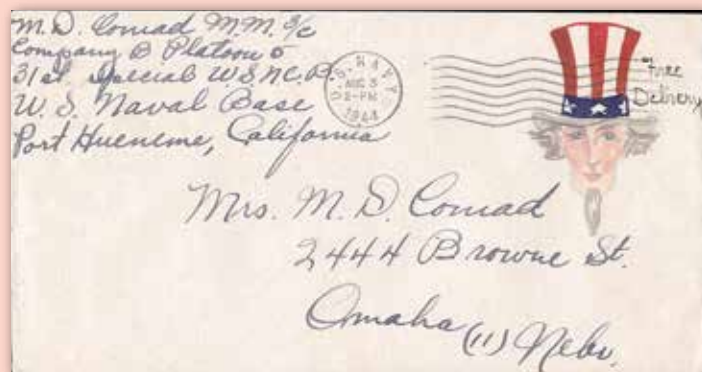 M. D. Conrad M.M. 3/c
Company B Platoon 5
31st Special U.S.N.C.B.
U. S. Naval Base
Port Hueneme, California
U.S. NAVY
AUG 3
1944
"Free
Delivery
Mrs. M. D. Conrad
2444 Browne St.
Omaha (11) Nebr.